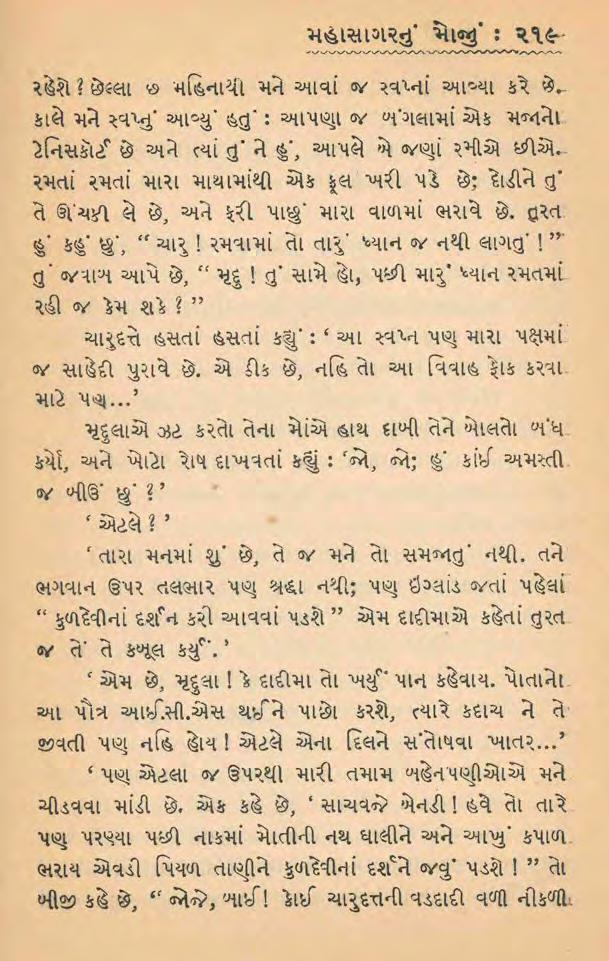 મહાસાગરનું મોજું : ૨૧૯
રહેશે ? છેલ્લા છ મહિનાથી મને આવાં જ સ્વપ્નાં આવ્યા કરે છે.
કાલે મને સ્વપ્નું આવ્યું હતું : આપણા જ બંગલામાં એક મજાનો
ટેનિસકૉર્ટ છે અને ત્યાં તું ને હું, આપલે બે જણાં રમીએ છીએ.
રમતાં રમતાં મારા માથામાંથી એક ફૂલ ખરી પડે છે; દોડીને તું
તે ઊંચકી લે છે, અને ફરી પાછું મારા વાળમાં ભરાવે છે. તુરત
હું કહું છું, “ ચારુ ! રમવામાં તો તારું ધ્યાન જ નથી લાગતું ! ”
તું જવાબ આપે છે, “ મૃદુ ! તું સામે હો, પછી મારું ધ્યાન રમતમાં
રહી જ કેમ શકે ? ”
ચારુદત્તે હસતાં હસતાં કહ્યું : ‘ આ સ્વપ્ન પણ મારા પક્ષમાં
જ સાહેદી પુરાવે છે. એ ઠીક છે, નહિ તો આ વિવાહ ફોક કરવા
માટે પણ...’
મૃદુલાએ ઝટ કરતો તેના મોંએ હાથ દાબી તેને બોલતો બંધ
કર્યો, અને ખોટો રોષ દાખવતાં કહ્યું : ‘જો, જો; હું કાંઈ અમસ્તી
જ બીઉં છું ?’
‘ એટલે ? ’
‘ તારા મનમાં શું છે, તે જ મને તો સમજાતું નથી. તને
ભગવાન ઉપર તલભાર પણ શ્રદ્ધા નથી; પણ ઇંગ્લાંડ જતાં પહેલાં
“ કુળદેવીનાં દર્શન કરી આવવાં પડશે ” એમ દાદીમાએ કહેતાં તુરત
જ તેં તે કબૂલ કર્યું. ’
‘ એમ છે, મૃદુલા ! કે દાદીમા તો ખર્યું પાન કહેવાય. પોતાનો
આ પૌત્ર આઈ.સી.એસ થઈને પાછો ફરશે, ત્યારે કદાચ ને તે
જીવતી પણ નહિ હોય ! એટલે એના દિલને સંતોષવા ખાતર...’
‘ પણ એટલા જ ઉપરથી મારી તમામ બહેનપણીઓએ મને
ચીડવવા માંડી છે. એક કહે છે, ‘ સાચવજે બેનડી ! હવે તો તારે
પણ પરણ્યા પછી નાકમાં મોતીની નથ ઘાલીને અને આખું કપાળ
ભરાય એવડી પિયળ તાણીને કુળદેવીનાં દર્શને જવું પડશે ! ” તો
બીજી કહે છે, “ જોજે, બાઈ ! કોઈ ચારુદત્તની વડદાદી વળી નીકળી